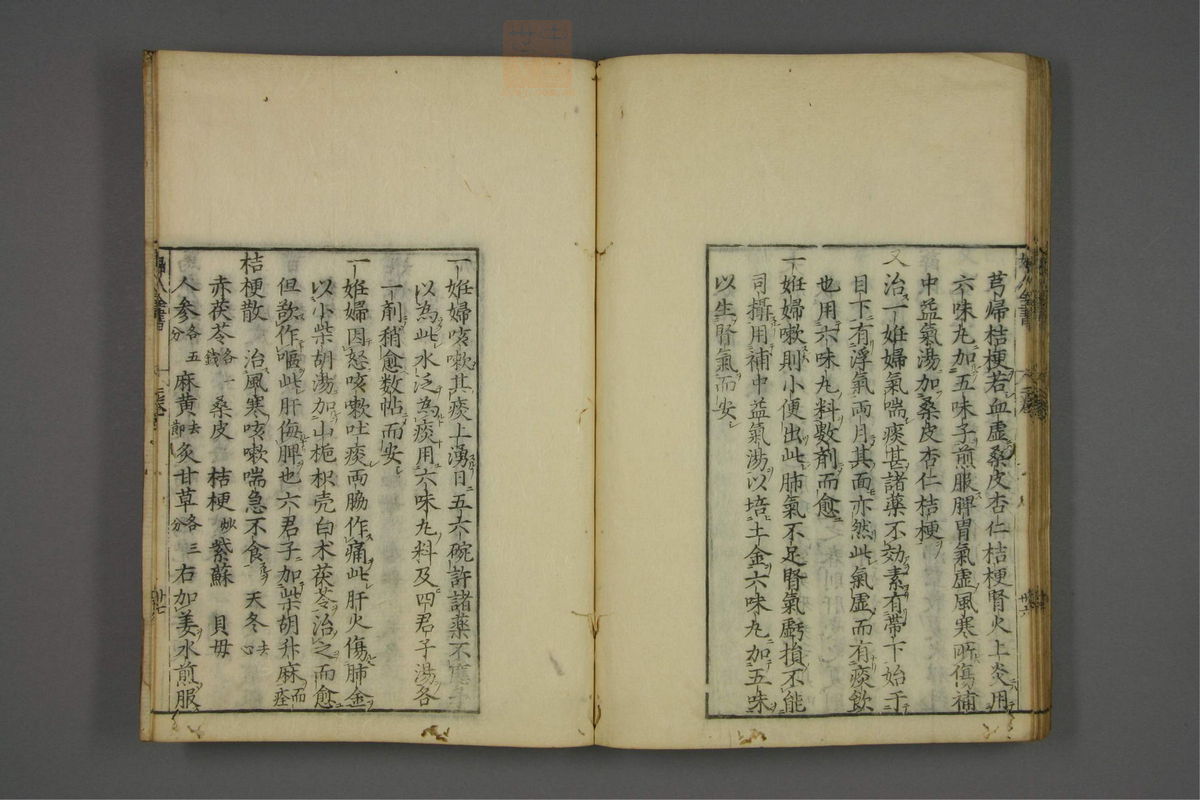 芎歸桔梗若血虛桑皮杏仁桔梗腎火上炎用
六味丸加五味子煎服脾胃氣虛風寒所傷補
中益氣湯加桑皮杏仁桔梗
又治一妊婦氣喘痰甚諸藥不効素有帶下始于
目下有浮氣兩月其面亦然此氣虛而有痰飲
也用六味丸料數劑而愈
一妊婦嗽則小便出此肺氣不足腎氣虧損不能
司攝用補中益氣湯以培土金六味丸加五味
以生腎氣而安
一妊婦咳嗽其痰上湧日五六碗許諸藥不應予
以為此水泛為痰用六味丸料及四君子湯各
一劑稍愈数帖而安
一妊婦因怒咳嗽吐痰両脇作痛此肝火傷肺金
以小柴胡湯加山梔枳壳白朮茯苓治之而愈
但欲作嘔此肝侮脾也六君子加柴胡升麻而痊
桔梗散 治風寒咳嗽喘急不食 天冬去心
赤茯苓各一錢 桑皮 桔梗炒 紫蘇 貝母
人参各五分 麻黄去節 炙甘草各三分 右加姜水煎服